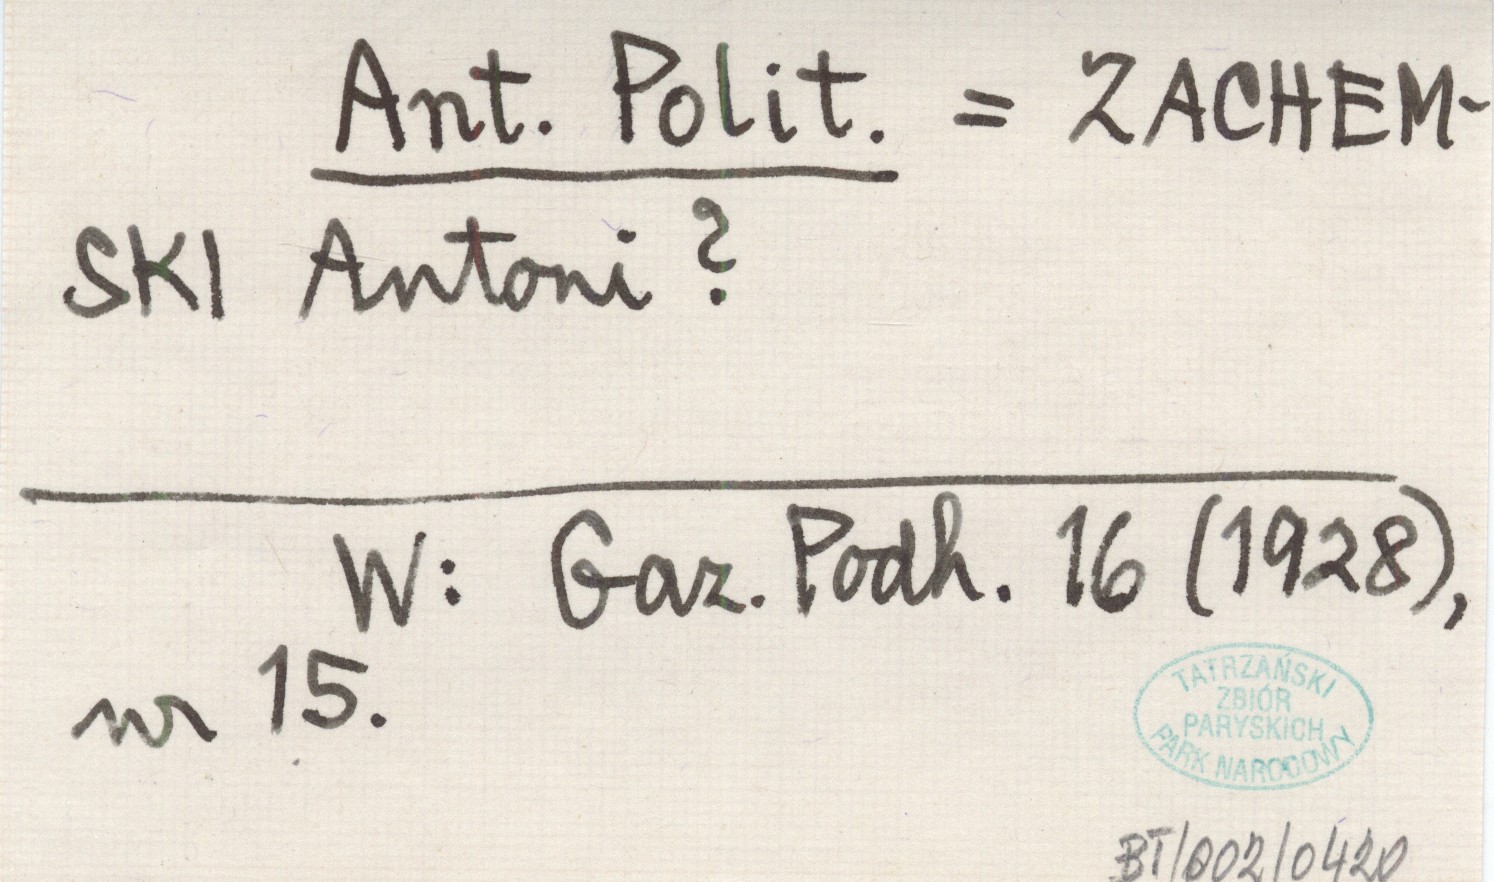 Ant. Polit. = ZACHEM-
SKI Antoni?
W: Gaz. Podh. 16 (1928),
nr 15.
TATRZAŃSKI
ZBIÓR
PARYSKICH
PARK NARODOWY
BT/002/0420